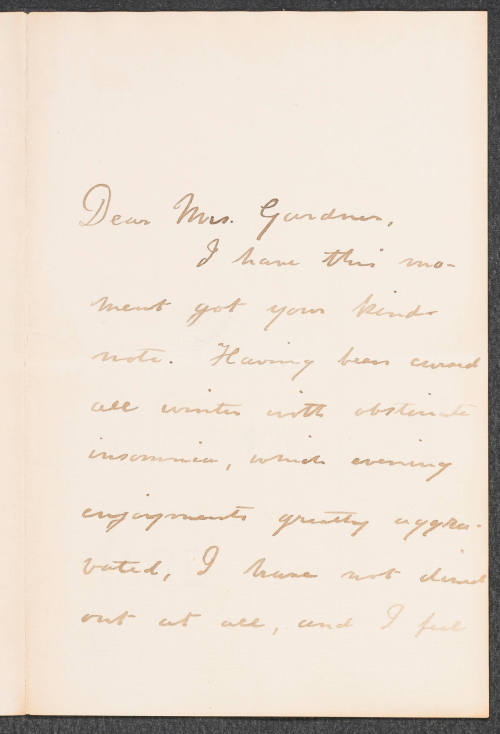 Dear Mrs. Gardner,
I have this mo-
ment got your kind
note. Having been cursed
all winter with obstinate
insomnia, which evening
enjoyments greatly aggra-
vated, I have not dined
out at all, and I feel